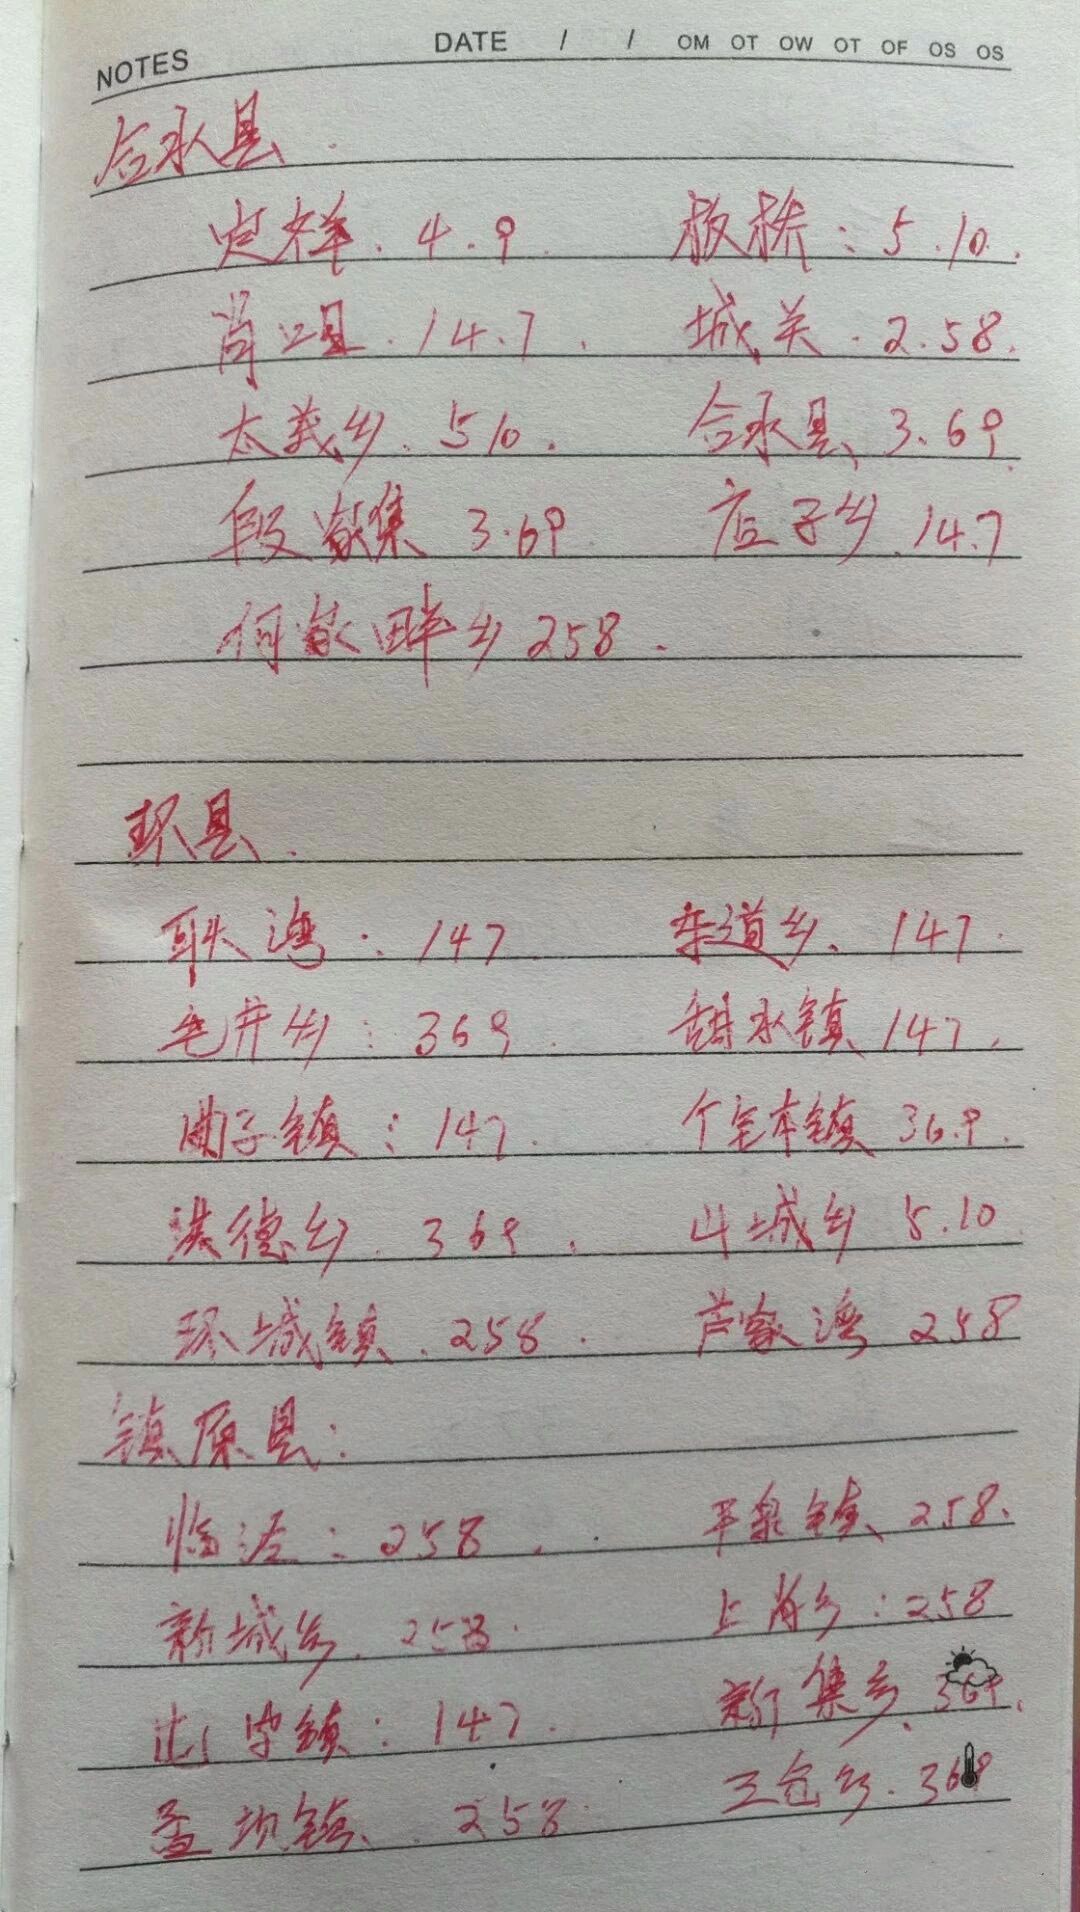 NOTES DATE / / OM OT OW OT OF OS OS
合水县.
定祥. 4.9. 板桥: 5.10.
肖咀. 14.7. 城关. 2.58.
太莪乡. 510. 合水县、3.69.
段家集 3.69 店子乡. 14.7
何家畔乡 258.
环县.
耿湾: 147 车道乡、147.
毛井乡: 369. 甜水镇 147.
曲子镇: 147. 个宝本镇 369.
洪德乡. 369. 山城乡 5.10
环城镇. 258. 芦家湾 258
镇原县:
临泾: 258. 平泉镇、258.
新城乡. 258. 上肖乡: 258
屯字镇: 147. 新集乡、369.
孟坝镇、258. 三岔乡. 369